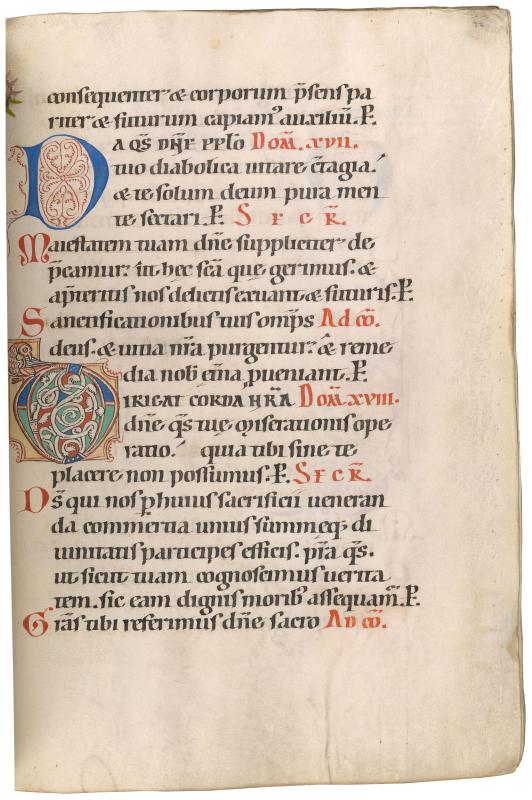 consequenter & corporum p̄sens pa
riter & futurum capiam᷒ auxiliū. P.
DA QS DN̄E PPLO Dom̄. xvii.
tuo diabolica uitare c̄tagia.
& te solum deum pura men
te sectari. P. S F C R.
Maiestatem tuam dn̄e suppliciter de
p̄camur: ut hec sc̄a que gerimus. &
a p̄teritis nos delictis exuant. & futuris. P.
Sanctificationibus tuis omp̄s Ad cō.
deus. & uitia nr̄a purgentur: & reme
dia nob̄ et̄na pueniant. P.
DIRIGAT CORDA NR̄A Dom̄. xviii.
dn̄e qs̄ tue om̄serationis ope
ratio. quia tibi sine te
placere non possumus. P. S F C R.
Ds̄ qui nos p huius sacrificii ueneran
da commertia unius summeq; di
uinitatis participes efficis. p̄ra qs̄.
ut sicut tuam cognoscimus uerita
tem. sic eam dignis morib᷒ assequam̄. P.
Gr̄as tibi referimus dn̄e sacro AD cō.